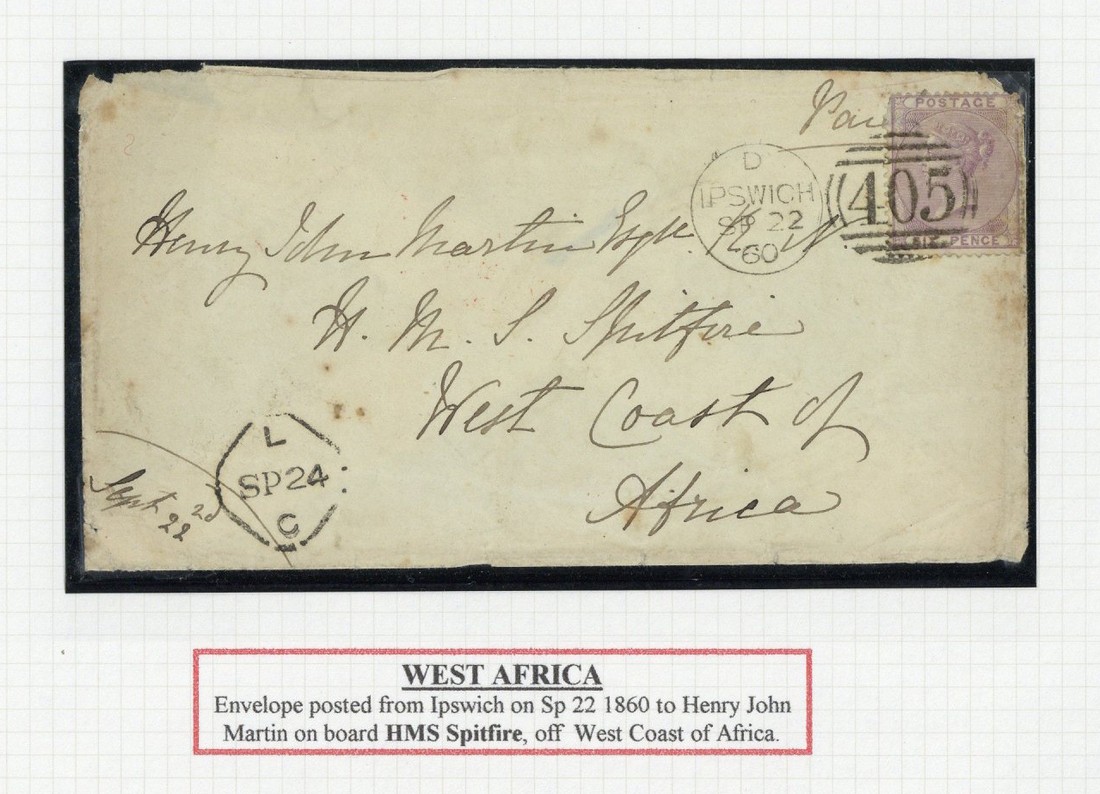 Pai
POSTAGE
D
IPSWICH
SP 22
60
405
SIX PENCE
Henry John Martin Esqre R. N.
H. M. S. Spitfire
West Coast of
Africa
L
SP 24
C
Sept 22
WEST AFRICA
Envelope posted from Ipswich on Sp 22 1860 to Henry John
Martin on board HMS Spitfire, off West Coast of Africa.